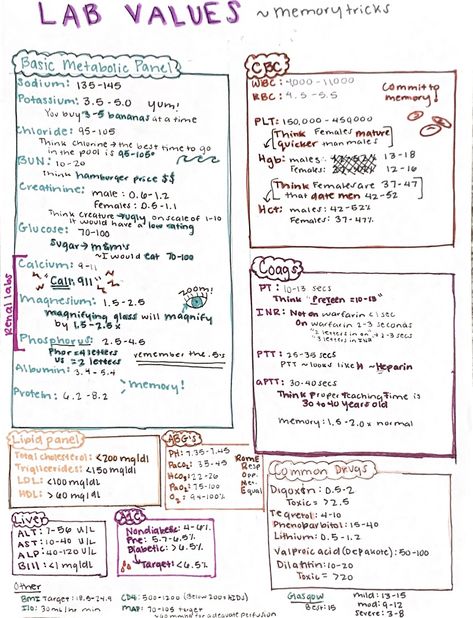 LAB VALUES ~memory tricks
Basic Metabolic Panel
Sodium: 135-145
Potassium: 3.5-5.0 yum!
You buy 3-5 bananas at a time
Chloride: 95-105
Think chlorine → the best time to go
in the pool is 95-105°
BUN: 10-20
Think hamburger price $$
Creatinine: male: 0.6-1.2
Females: 0.5-1.1
Think creature → ugly on scale of 1-10
it would have a low rating
Glucose: 70-100
Sugar → M&M's
~I would eat 70-100
Renal labs
Calcium: 9-11
"Call 911"
Magnesium: 1.5-2.5
zoom!
magnifying glass will magnify
by 1.5-2.5x
Phosphorus: 2.5-4.5
Phor = 4 letters
us = 2 letters
remember the .5's
Albumin: 3.4-5.4
Protein: 6.2-8.2
memory!
CBC
WBC: 4000-11000
RBC: 4.5-5.5
Commit to
memory!
PLT: 150,000-450000
Think Females mature
quicker than males
Hgb: males: 13-18
Females: 12-16
Think Females are 37-47
that date men 42-52
Hct: males: 42-52%
Females: 37-47%
Coags
PT: 10-13 secs
Think "PreTeen = 10-13"
INR: Not on warfarin <1 sec
On warfarin 2-3 seconds
"2 letters in on" → 2
"3 letters in INR"
PTT: 25-35 secs
PTT ~looks like H ~Heparin
aPTT: 30-40 secs
Think Proper Teaching Time is
30 to 40 years old
memory: 1.5-2.0 x normal
Lipid panel
Total cholesterol: <200 mg/dl
Triglicerides: <150 mg/dl
LDL: <100 mg/dl
HDL: >60 mg/dl
ABG's
PH: 7.35-7.45
PaCO2: 35-45
HCO3: 22-26
PaO2: 75-100
O2: 94-100%
Rome
Resp
Opp.
Met.
Equal
Common Drugs
Digoxin: 0.5-2
Toxic = >2.5
Tegretol: 4-10
Phenobarbitol: 15-40
Lithium: 0.5-1.2
Valproic acid (Depakote): 50-100
Dilantin: 10-20
Toxic = >20
Liver
ALT: 7-56 U/L
AST: 10-40 U/L
ALP: 40-120 U/L
Bili: <1 mg/dl
A1C
Nondiabetic: 4-6%
Pre: 5.7-6.5%
Diabetic: >6.5%
Target: <6.5%
Other
BMI Target: 18.5-24.9
CD4: 500-1200 (Below 200 = AIDS)
I/O: 30 ml/hr min
MAP: 70-105 target
for adequate perfusion
Glasgow
Best: 15
mild: 13-15
mod: 9-12
severe: 3-8